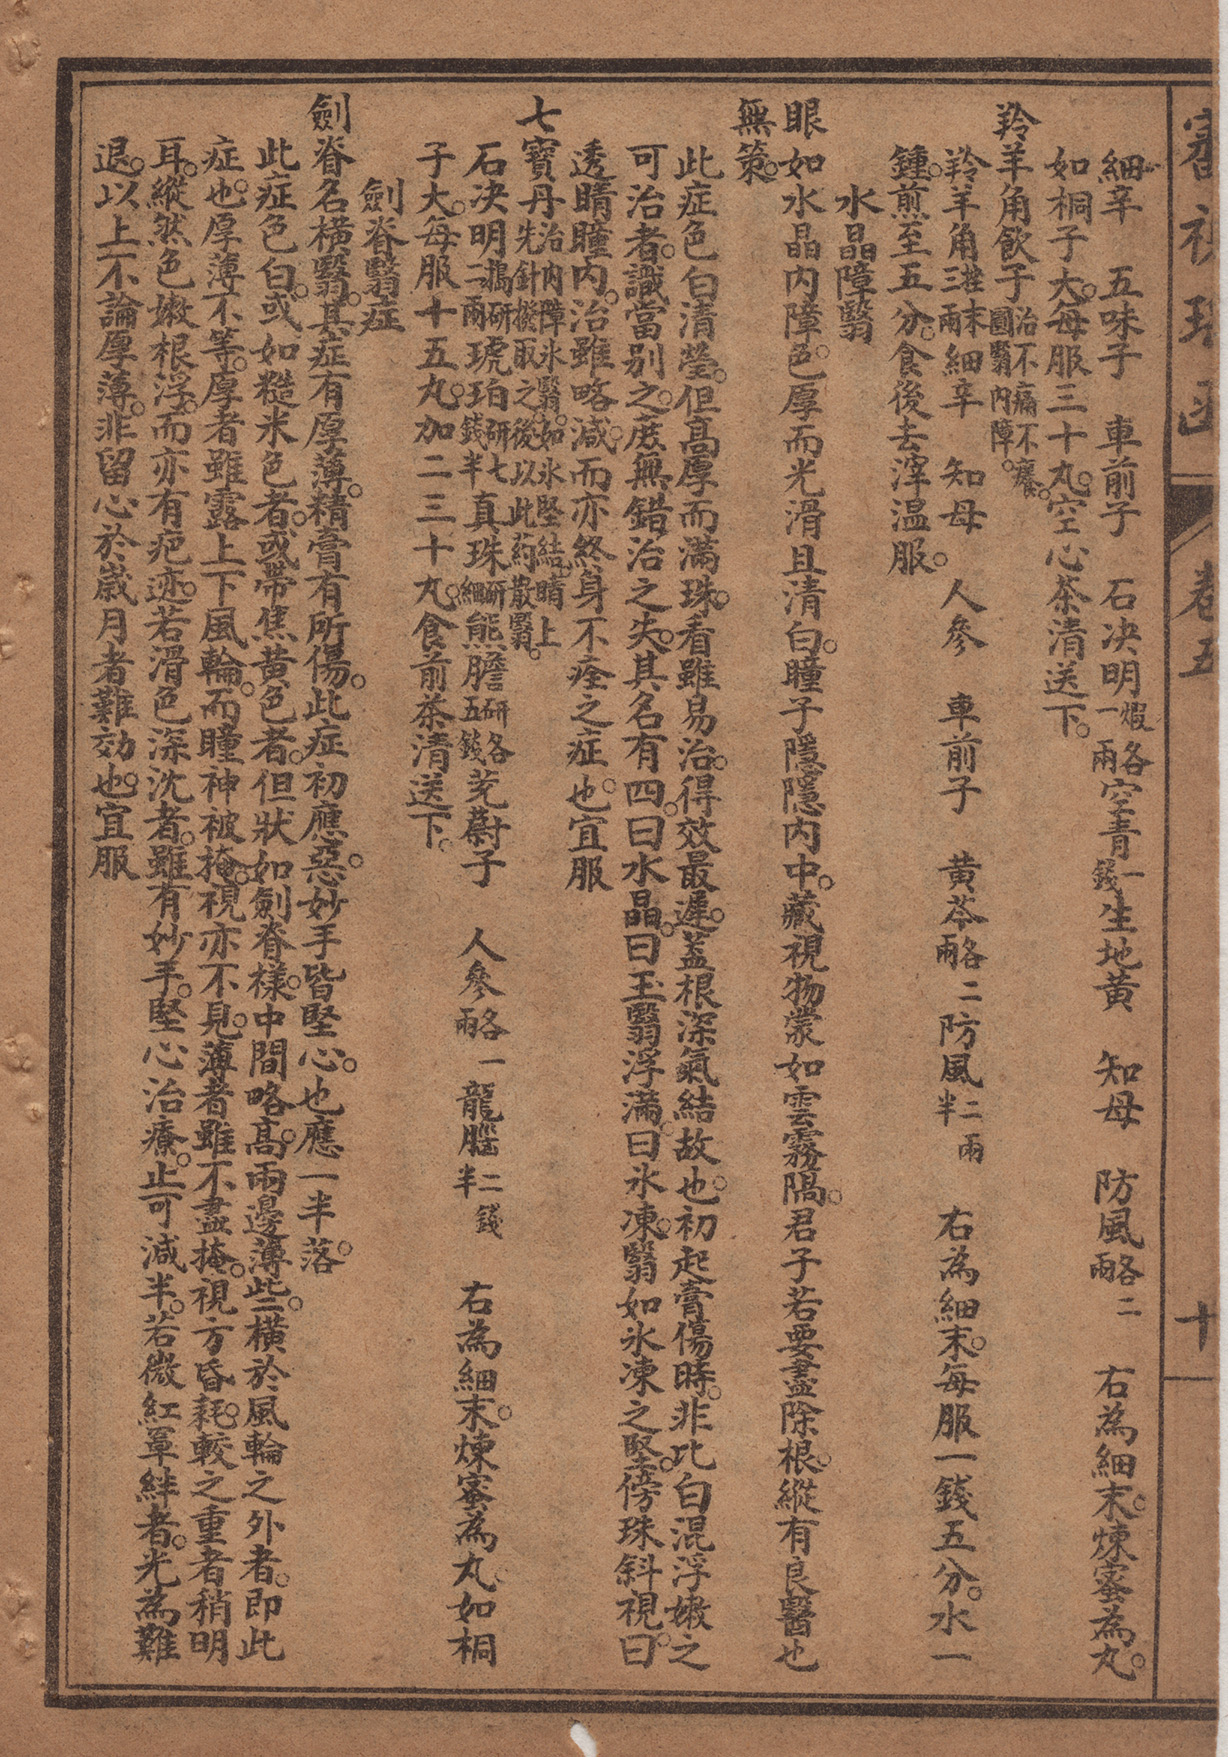 審視瑤函 卷五 十
細辛 五味子 車前子 石決明煆各一兩空青一錢生地黃 知母 防風各二兩 右為細末。煉蜜為丸。
如桐子大。每服三十丸。空心茶清送下。
羚羊角飲子治不痛不癢。圓翳內障。
羚羊角鎊末三兩細辛 知母 人參 車前子 黃芩各二兩防風二兩半 右為細末。每服一錢五分。水一
鍾。煎至五分。食後去滓溫服。
水晶障翳
眼如水晶內障。色厚而光滑且清白。瞳子隱隱內中。藏視物蒙如雲霧隔。君子若要盡除根。縱有良醫也
無策。
此症色白清瑩。但高厚而滿珠。看雖易治。得效最遲。蓋根深氣結故也。初起膏傷時。非比白混浮嫩之
可治者。識當別之。庶無錯治之失。其名有四。曰水晶。曰玉翳浮滿。曰氷凍。翳如氷凍之堅。傍珠斜視。曰
透睛瞳內。治雖略減。而亦終身不痊之症也。宜服
七寶丹治內障氷翳。如氷堅結睛上。先針撥取之。後以此藥散翳。
石決明搗研二兩琥珀研七錢半真珠研細熊膽研各五錢茺蔚子 人參各一兩龍腦二錢半 右為細末。煉蜜為丸。如桐
子大。每服十五丸。加二三十丸。食前茶清送下。
劍脊翳症
劍脊名橫翳。其症有厚薄。精膏有所傷。此症初應惡。妙手皆堅心。也應一半落。
此症色白。或如糙米色者。或帶焦黃色者。但狀如劍脊樣。中間略高。兩邊薄些。橫於風輪之外者。即此
症也。厚薄不等。厚者雖露上下風輪。而瞳神被掩。視亦不見。薄者雖不盡掩。視方昏耗。較之重者稍明
耳。縱然色嫩根浮。而亦有疤迹。若滑色深沈者。雖有妙手。堅心治療。止可減半。若微紅罩絆者。光為難
退。以上不論厚薄。非留心於歲月者難効也。宜服